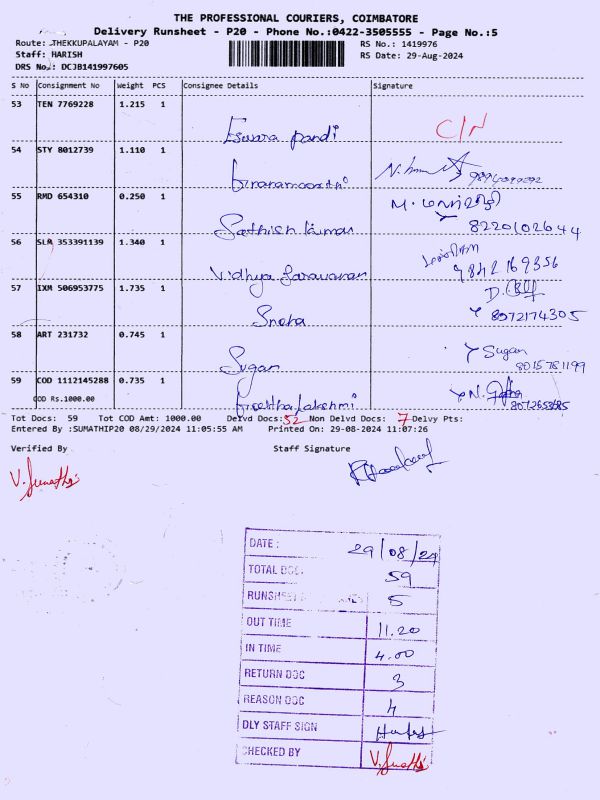 THE PROFESSIONAL COURIERS, COIMBATORE
Delivery Runsheet - P20 - Phone No.:0422-3505555 - Page No.:5
Route: THEKKUPALAYAM - P20
RS No.: 1419976
Staff: HARISH
RS Date: 29-Aug-2024
DRS No.: DCJB141997605
S No Consignment No Weight PCS Consignee Details Signature
53 TEN 7769228 1.215 1 Eswara pandi C/N
54 STY 8012739 1.110 1
55 RMD 654310 0.250 1 Sathish kumar 8220102644
56 SLR 353391139 1.340 1 Vidhya Saravanan 9842169356
57 IXM 506953775 1.735 1 Sneha 8072174305
58 ART 231732 0.745 1 Sugan Sugan 8015781199
59 COD 1112145288 0.735 1
COD Rs.1000.00
Tot Docs: 59 Tot COD Amt: 1000.00 Delvd Docs: 52 Non Delvd Docs: 7 Delvy Pts:
Entered By :SUMATHIP20 08/29/2024 11:05:55 AM Printed On: 29-08-2024 11:07:26
Verified By Staff Signature
V. Sumathi
DATE : 29/08/24
TOTAL DOC. 59
RUNSHEET 5
OUT TIME 11.20
IN TIME 4.00
RETURN DOC 3
REASON DOC 4
DLY STAFF SIGN
CHECKED BY V. Sumathi